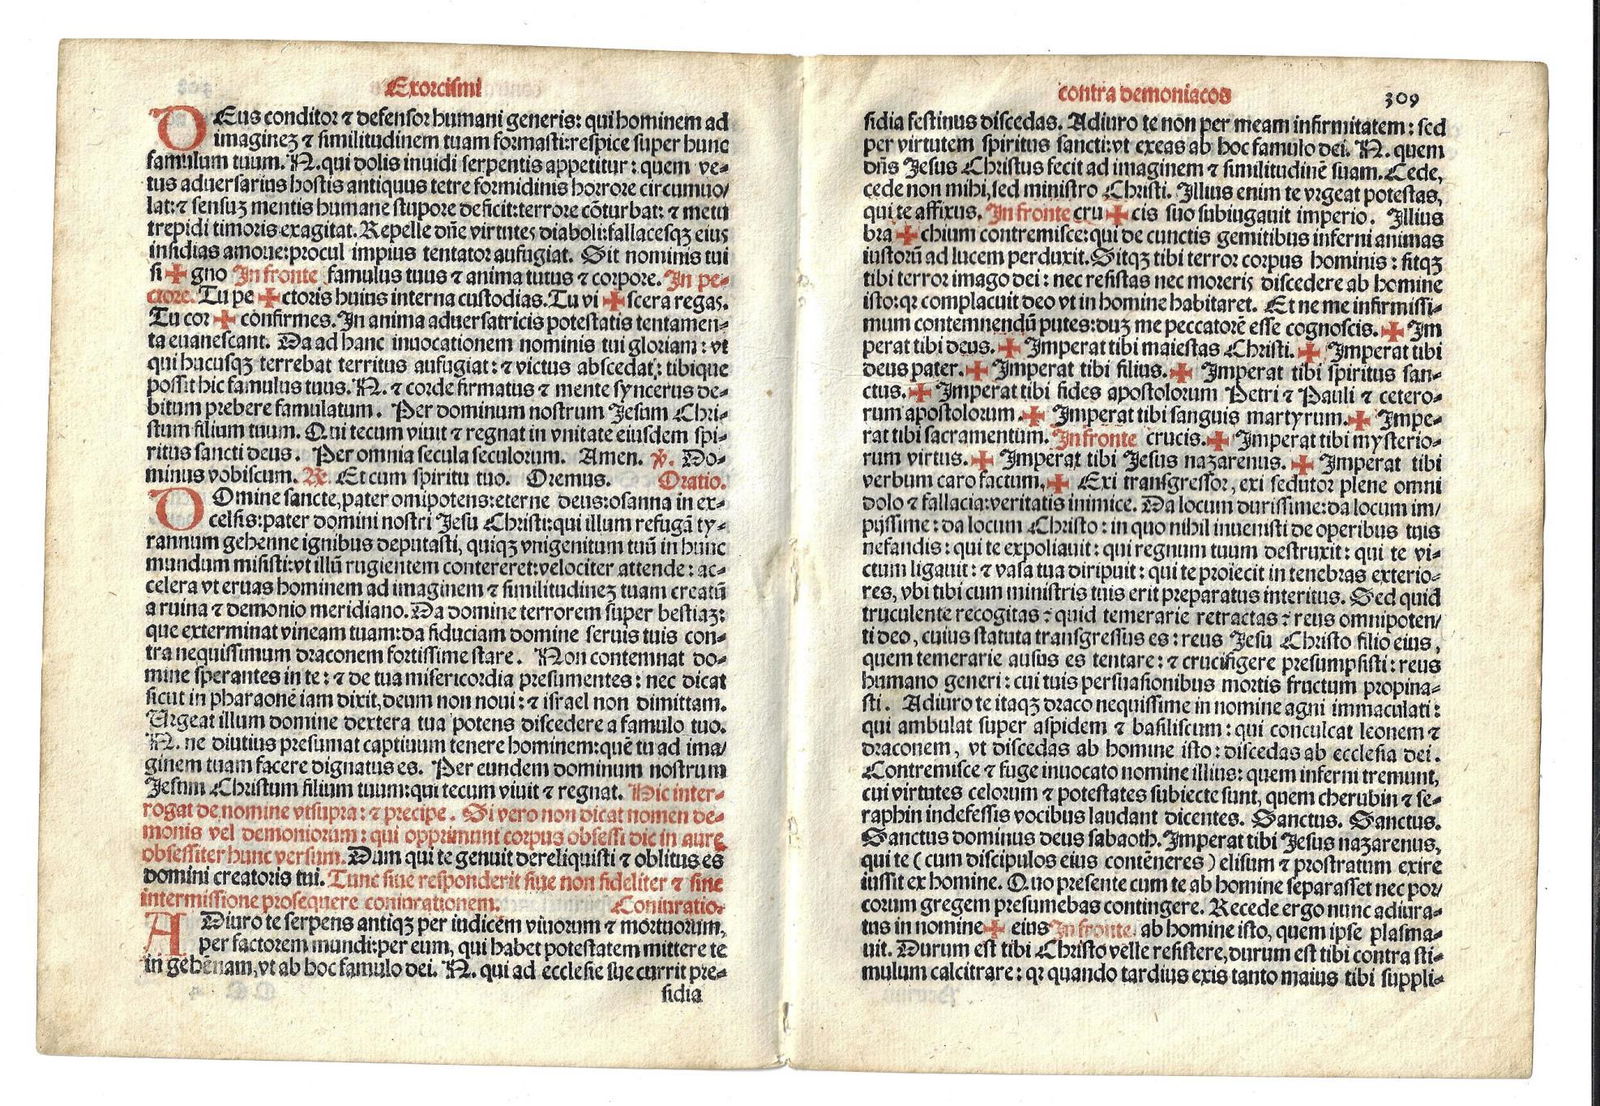 Exorcismi
DEus conditor ⁊ defensor humani generis: qui hominem ad
imagineʒ ⁊ similitudinem tuam formasti: respice super hunc
famulum tuum. N. qui dolis inuidi serpentis appetitur: quem ve-
tus aduersarius hostis antiquus tetre formidinis horrore circumuo/
lat: ⁊ sensuʒ mentis humane stupore deficit: terrore cōturbat: ⁊ metu
trepidi timoris exagitat. Repelle dn̄e virtuteʒ diaboli: fallacesqʒ eius
insidias amoue: procul impius tentator aufugiat. Sit nominis tui
si ✠ gno In fronte famulus tuus ⁊ anima tutus ⁊ corpore. In pe-
ctore. Tu pe ✠ ctoris huius interna custodias. Tu vi ✠ scera regas.
Tu cor ✠ confirmes. In anima aduersatricis potestatis tentamen-
ta euanescant. Da ad hanc inuocationem nominis tui gloriam: vt
qui hucusqʒ terrebat territus aufugiat: ⁊ victus abscedat: tibique
possit hic famulus tuus. N. ⁊ corde firmatus ⁊ mente syncerus de-
bitum prebere famulatum. Per dominum nostrum Jesum Chri-
stum filium tuum. Qui tecum viuit ⁊ regnat in vnitate eiusdem spi-
ritus sancti deus. Per omnia secula seculorum. Amen. ℣. Do-
minus vobiscum. ℟. Et cum spiritu tuo. Oremus. Oratio.
DOmine sancte, pater omipotens: eterne deus: osanna in ex-
celsis: pater domini nostri Jesu Christi: qui illum refugā ty-
rannum gehenne ignibus deputasti, quiqʒ vnigenitum tuū in hunc
mundum misisti: vt illū rugientem contereret: velociter attende: ac-
celera vt eruas hominem ad imaginem ⁊ similitudineʒ tuam creatū
a ruina ⁊ demonio meridiano. Da domine terrorem super bestiaʒ:
que exterminat vineam tuam: da fiduciam domine seruis tuis con-
tra nequissimum draconem fortissime stare. Non contemnat do-
mine sperantes in te: ⁊ de tua misericordia presumentes: nec dicat
sicut in pharaone iam dixit, deum non noui: ⁊ israel non dimittam.
Urgeat illum domine dextera tua potens discedere a famulo tuo.
N. ne diutius presumat captiuum tenere hominem: quē tu ad ima/
ginem tuam facere dignatus es. Per eundem dominum nostrum
Jesum Christum filium tuum: qui tecum viuit ⁊ regnat. Hic inter-
rogat de nomine vt supra: ⁊ precipe. Si vero non dicat nomen de-
monis vel demoniorum: qui opprimunt corpus obsessi dic in aure
obsessi ter hunc versum. Dum qui te genuit dereliquisti ⁊ oblitus es
domini creatoris tui. Tunc siue responderit siue non fideliter ⁊ sine
intermissione prosequere coniurationem. Coniuratio.
ADiuro te serpens antiqʒ per iudicem viuorum ⁊ mortuorum,
per factorem mundi: per eum, qui habet potestatem mittere te
in gehēnam, vt ab hoc famulo dei. N. qui ad ecclesie sue currit pre-
sidia
contra demoniacos 309
sidia festinus discedas. Adiuro te non per meam infirmitatem: sed
per virtutem spiritus sancti: vt exeas ab hoc famulo dei. N. quem
dn̄s Jesus Christus fecit ad imaginem ⁊ similitudinē suam. Cede,
cede non mihi, sed ministro Christi. Illius enim te vrgeat potestas,
qui te affixus. In fronte cru ✠ cis suo subiugauit imperio. Illius
bra ✠ chium contremisce: qui de cunctis gemitibus inferni animas
iustorū ad lucem perduxit. Sitqʒ tibi terror corpus hominis: sitqʒ
tibi terror imago dei: nec resistas nec moreris discedere ab homine
isto: qr complacuit deo vt in homine habitaret. Et ne me infirmissi-
mum contemnendū putes: duʒ me peccatorē esse cognoscis. ✠ Im
perat tibi deus. ✠ Imperat tibi maiestas Christi. ✠ Imperat tibi
deus pater. ✠ Imperat tibi filius. ✠ Imperat tibi spiritus san-
ctus. ✠ Imperat tibi fides apostolorum Petri ⁊ Pauli ⁊ cetero-
rum apostolorum. ✠ Imperat tibi sanguis martyrum. ✠ Impe-
rat tibi sacramentum. In fronte crucis. ✠ Imperat tibi mysterio-
rum virtus. ✠ Imperat tibi Jesus nazarenus. ✠ Imperat tibi
verbum caro factum. ✠ Exi transgressor, exi sedutor plene omni
dolo ⁊ fallacia: veritatis inimice. Da locum durissime: da locum im/
pijssime: da locum Christo: in quo nihil inuenisti de operibus tuis
nefandis: qui te expoliauit: qui regnum tuum destruxit: qui te vi-
ctum ligauit: ⁊ vasa tua diripuit: qui te proiecit in tenebras exterio-
res, vbi tibi cum ministris tuis erit preparatus interitus. Sed quid
truculente recogitas: quid temerarie retractas: reus omnipoten/
ti deo, cuius statuta transgressus es: reus Jesu Christo filio eius,
quem temerarie ausus es tentare: ⁊ crucifigere presumpsisti: reus
humano generi: cui tuis persuasionibus mortis fructum propina-
sti. Adiuro te itaqʒ draco nequissime in nomine agni immaculati:
qui ambulat super aspidem ⁊ basiliscum: qui conculcat leonem ⁊
draconem, vt discedas ab homine isto: discedas ab ecclesia dei.
Contremisce ⁊ fuge inuocato nomine illius: quem inferni tremunt,
cui virtutes celorum ⁊ potestates subiecte sunt, quem cherubin ⁊ se-
raphin indefessis vocibus laudant dicentes. Sanctus. Sanctus.
Sanctus dominus deus sabaoth. Imperat tibi Jesus nazarenus,
qui te (cum discipulos eius contēneres) elisum ⁊ prostratum exire
iussit ex homine. Quo presente cum te ab homine separasset nec por/
corum gregem presumebas contingere. Recede ergo nunc adiura-
tus in nomine ✠ eius In fronte. ab homine isto, quem ipse plasma-
uit. Durum est tibi Christo velle resistere, durum est tibi contra sti-
mulum calcitrare: qr quando tardius exis tanto maius tibi suppli-